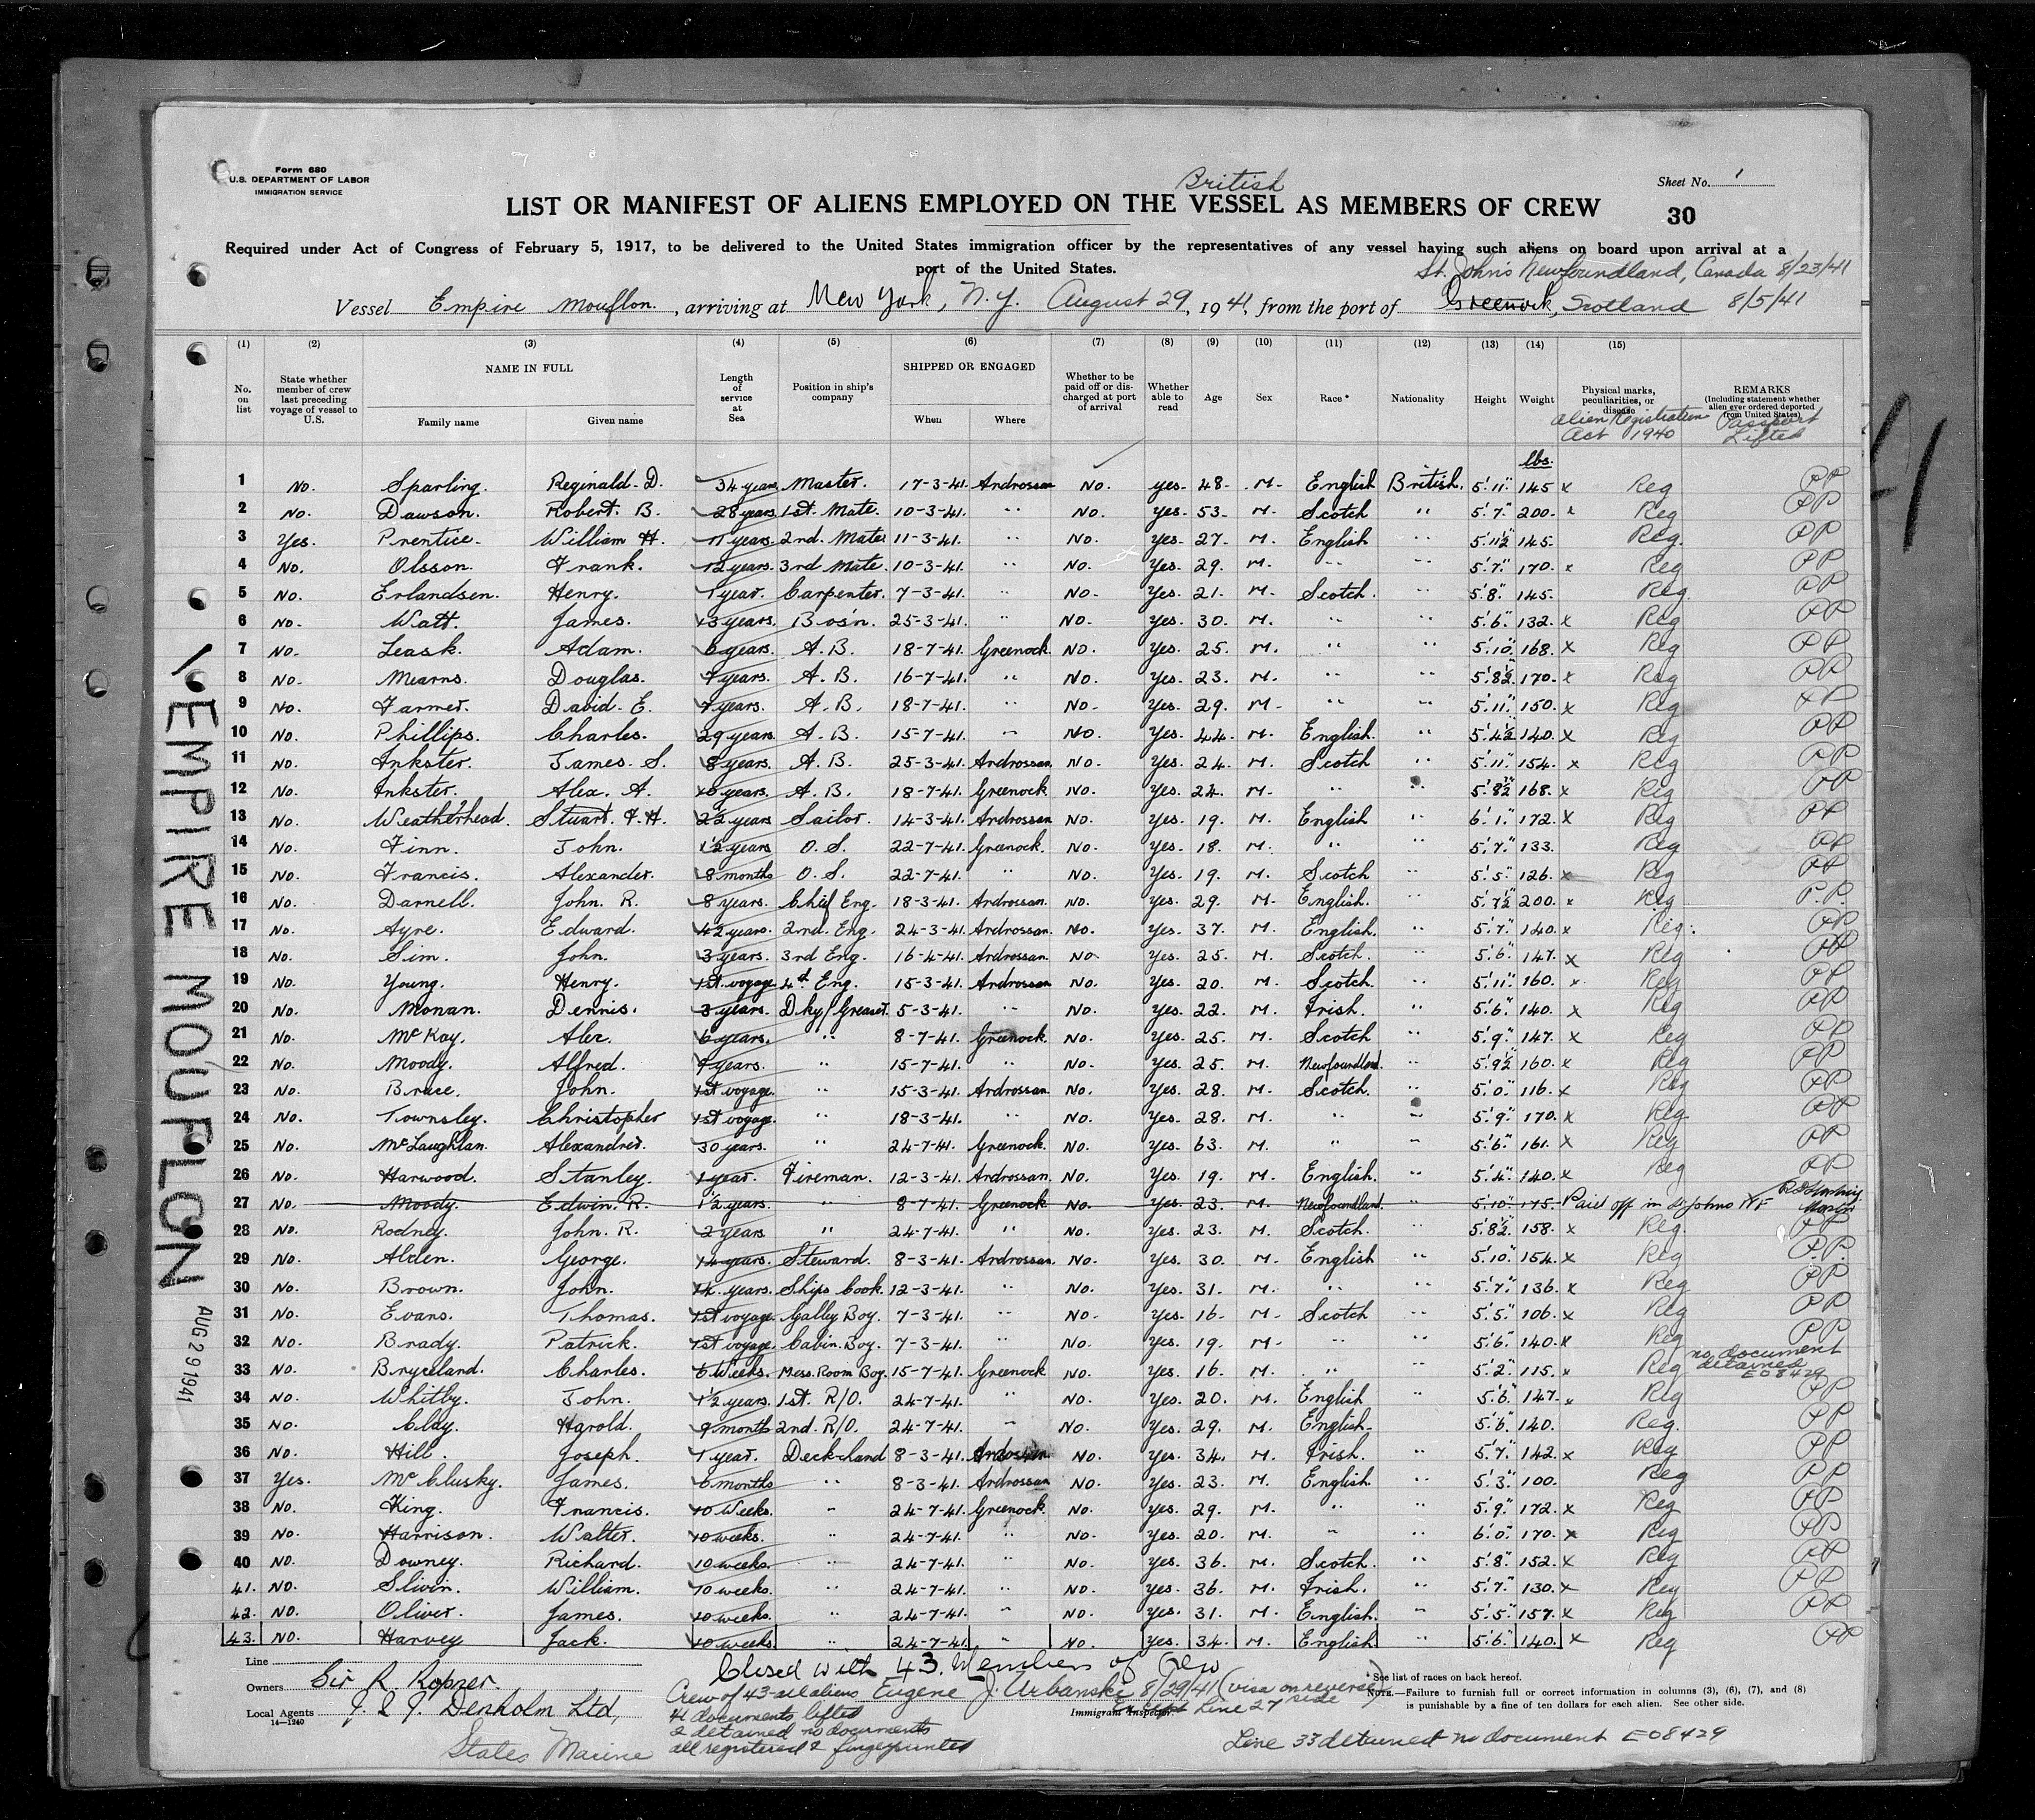 Form 680
U.S. DEPARTMENT OF LABOR
IMMIGRATION SERVICE
Sheet No. 1
British
LIST OR MANIFEST OF ALIENS EMPLOYED ON THE VESSEL AS MEMBERS OF CREW
30
Required under Act of Congress of February 5, 1917, to be delivered to the United States immigration officer by the representatives of any vessel having such aliens on board upon arrival at a
port of the United States.
St. John's Newfoundland, Canada 8/23/41
Vessel Empire Mouflon, arriving at New York, N.Y. August 29, 1941, from the port of Greenock, Scotland 8/5/41
(1) (2) (3) (4) (5) (6) (7) (8) (9) (10) (11) (12) (13) (14) (15)
No. on list State whether member of crew last preceding voyage of vessel to U.S. NAME IN FULL Family name Given name Length of service at Sea Position in ship's company SHIPPED OR ENGAGED When Where Whether to be paid off or discharged at port of arrival Whether able to read Age Sex Race* Nationality Height Weight Physical marks, peculiarities, or disease REMARKS (Including statement whether alien ever ordered deported from United States)
Alien Registration Act 1940 Passport Lifted
lbs.
1 No. Sparling. Reginald. D. 34 years Master. 17-3-41. Ardrossan No. yes. 48. M. English British. 5'.11" 145 x Reg PP
2 No. Dawson. Robert. B. 28 years 1st. Mate. 10-3-41. " No. Yes. 53. M. Scotch " 5'.7" 200. x Reg PP
3 Yes. Prentice. William H. years. 2nd. Mate 11-3-41. " No. Yes. 27. M. English " 5'.11½ 145. Reg. PP
4 No. Olsson. Frank. 12 years. 3rd Mate. 10-3-41. " No. Yes. 29. M. " " 5'.7" 170. x Reg PP
5 No. Erlandsen. Henry. 1 year. Carpenter. 7-3-41. " No. Yes. 21. M. Scotch. " 5'.8" 145. Reg. PP
6 No. Watt. James. 13 years. Bos'n. 25-3-41. " No. Yes. 30. M. " " 5'.6" 132. x Reg PP
7 No. Leask. Adam. 6 years. A.B. 18-7-41. Greenock. No. Yes. 25. M. " " 5'.10" 168. x Reg PP
8 No. Mearns. Douglas. years. A.B. 16-7-41. " No. Yes. 23. M. " " 5'.8½" 170. x Reg PP
9 No. Farmer. David. E. years. A.B. 18-7-41. " No. Yes. 29. M. " " 5'.11" 150. x Reg PP
10 No. Phillips. Charles. 29 years A.B. 15-7-41. " No. Yes. 44. M. English. " 5'.4½ 140. x Reg PP
11 No. Inkster. James. S. 8 years. A.B. 25-3-41. Ardrossan No. Yes. 24. M. Scotch " 5'.11" 154. x Reg PP
12 No. Inkster. Alex. A. years. A.B. 18-7-41. Greenock No. Yes. 24. M. " " 5'.8½" 168. x Reg PP
13 No. Weatherhead. Stuart. F.H. 2½ years Sailor. 14-3-41. Ardrossan No. Yes. 19. M. English " 6'.1" 172. x Reg PP
14 No. Finn. John. 1½ years O.S. 22-7-41. Greenock. No. Yes. 18. M. " " 5'.7" 133. Reg PP
15 No. Francis. Alexander. 8 months O.S. 22-7-41. " No. Yes. 19. M. Scotch " 5'.5" 126. x Reg PP
16 No. Darnell. John. R. 8 years. Chief Eng. 18-3-41. Ardrossan. No. Yes. 29. M. English. " 5'.7½ 200. x Reg P.P.
17 No. Ayre. Edward. 12 years. 2nd. Eng. 24-3-41. Ardrossan. No. Yes. 37. M. English. " 5'.7" 140. x Reg. PP
18 No. Sim. John. 3 years. 3rd Eng. 16-4-41. Ardrossan No. Yes. 25. M. Scotch. " 5'.6" 147. x Reg PP
19 No. Young. Henry. 1st. voyage 4th Eng. 15-3-41. Ardrossan No. Yes. 20. M. Scotch. " 5'.11" 160. x Reg PP
20 No. Monan. Dennis. 3 years. Dky/Greaser. 5-3-41. " No. Yes. 22. M. Irish. " 5'.6" 140. x Reg PP
21 No. McKay. Alec. 6 years. " 8-7-41. Greenock. No. Yes. 25. M. Scotch " 5'.9" 147. x Reg PP
22 No. Moody. Alfred. years. " 15-7-41. " No. Yes. 25. M. Newfoundland. " 5'.9½ 160. x Reg PP
23 No. Brace. John. 1st voyage. " 15-3-41. Ardrossan No. Yes. 28. M. Scotch. " 5'.0" 116. x Reg PP
24 No. Townsley. Christopher 1st voyage. " 18-3-41. " No. Yes. 28. M. " " 5'.9" 170. x Reg PP
25 No. McLaughlan. Alexander. 30 years. " 24-7-41. Greenock. No. Yes. 63. M. " " 5'.6" 161. x Reg PP
26 No. Harwood. Stanley. 1 year. Fireman. 12-3-41. Ardrossan. No. Yes. 19. M. English. " 5'.4" 140. x Reg PP
27 No. Moody. Edwin. R. 1½ years. " 8-7-41. Greenock No. Yes. 23. M. Newfoundland. " 5'.10" 175. Paid off in St Johns NF
28 No. Rodney. John. R. 2 years " 24-7-41. " No. Yes. 23. M. Scotch. " 5'.8½ 158. x Reg. PP
29 No. Alden. George. 14 years. Steward. 8-3-41. Ardrossan. No. Yes. 30. M. English " 5'.10" 154. x Reg PP.
30 No. Brown. John. 14 years. Ships Cook. 12-3-41. " No. Yes. 31. M. " " 5'.7" 136. x Reg PP
31 No. Evans. Thomas. 1st voyage. Galley Boy. 7-3-41. " No. Yes. 16. M. Scotch " 5'.5" 106. x Reg PP
32 No. Brady. Patrick. 1st voyage. Cabin. Boy. 7-3-41. " No. Yes. 19. M. " " 5'.6" 140. x Reg PP
33 No. Bryceland. Charles. 6 Weeks. Mess. Room Boy. 15-7-41. Greenock No. Yes. 16. M. " " 5'.2" 115. x Reg no document detained E08429
34 No. Whitby. John. 1½ years. 1st. R/O. 24-7-41. " No. Yes. 20. M. English " 5'.6" 147. x Reg PP
35 No. Clay. Harold. 9 months 2nd. R/O. 24-7-41. " No. Yes. 29. M. English. " 5'.6" 140. Reg. PP
36 No. Hill. Joseph. 1 year. Deck-hand 8-3-41. Ardrossan No. Yes. 34. M. Irish. " 5'.7" 142. x Reg PP
37 Yes. McClusky. James. 6 months " 8-3-41. Ardrossan No. Yes. 23. M. English " 5'.3" 100. Reg PP
38 No. King. Francis. 10 Weeks. " 24-7-41. Greenock. No. Yes. 29. M. " " 5'.9" 172. x Reg PP
39 No. Harrison. Walter. 10 weeks. " 24-7-41. " No. Yes. 20. M. " " 6'.0" 170. x Reg PP
40 No. Downey. Richard. 10 weeks. " 24-7-41. " No. Yes. 36. M. Scotch. " 5'.8" 152. x Reg PP
41. No. Slivin. William. 10 weeks. " 24-7-41. " No. Yes. 36. M. Irish. " 5'.7" 130. x Reg PP
42. No. Oliver. James. 10 weeks. " 24-7-41. " No. Yes. 31. M. English. " 5'.5" 157. x Reg PP
43. No. Harvey Jack. 10 weeks. " 24-7-41. " No. Yes. 34. M. English " 5'.6" 140. x Reg PP
Line
Closed with 43. Members of Crew
Owners Sir R. Ropner
Local Agents J. & J. Denholm Ltd,
14-1240
States Marine
Crew of 43 - all aliens
41 documents lifted
2 detained no documents
all registered & fingerprinted
Eugene J. Urbanski 8/29/41 (visa on reverse side)
Immigrant Inspector.
Except Line 27
* See list of races on back hereof.
NOTE.—Failure to furnish full or correct information in columns (3), (6), (7), and (8)
is punishable by a fine of ten dollars for each alien. See other side.
Line 33 detained no document E08429
EMPIRE MOUFLON
AUG 29 1941